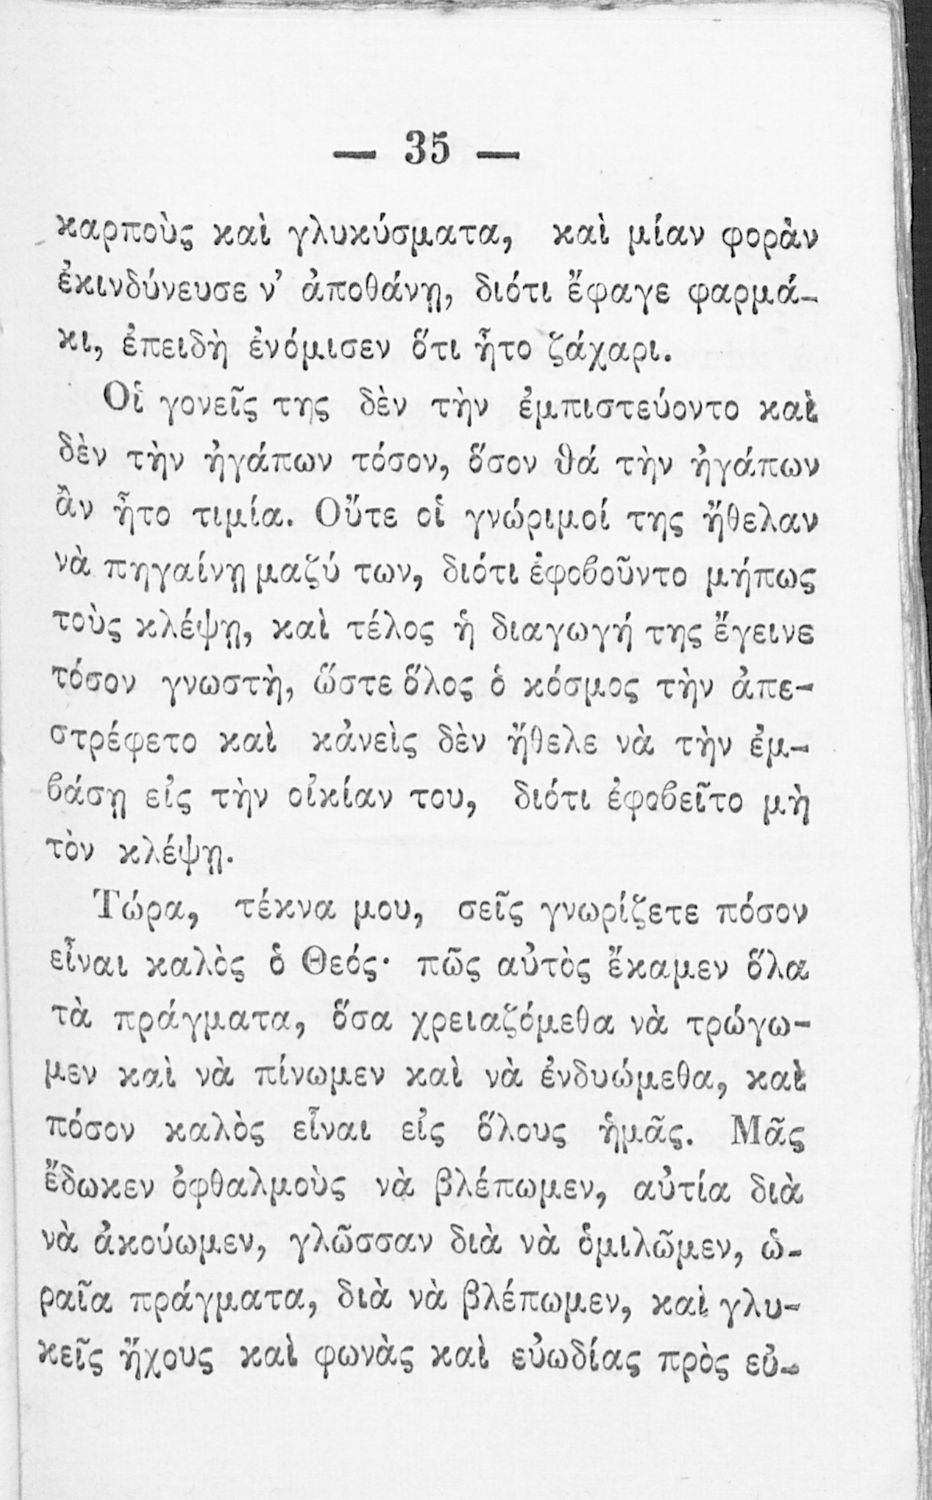 — 35 —
καρποὺς καὶ γλυκύσματα, καὶ μίαν φορὰν
ἐκινδύνευσε ν’ ἀποθάνῃ, διότι ἔφαγε φαρμά-
κι, ἐπειδὴ ἐνόμισεν ὅτι ἦτο ζάχαρι.
Οἱ γονεῖς της δὲν τὴν ἐμπιστεύοντο καὶ
δὲν τὴν ἠγάπων τόσον, ὅσον θά τὴν ἠγάπων
ἂν ἦτο τιμία. Οὔτε οἱ γνώριμοί της ἤθελαν
νὰ πηγαίνῃ μαζύ των, διότι ἐφοβοῦντο μήπως
τοὺς κλέψῃ, καὶ τέλος ἡ διαγωγή της ἔγεινε
τόσον γνωστὴ, ὥστε ὅλος ὁ κόσμος τὴν ἀπε-
στρέφετο καὶ κἀνεὶς δὲν ἤθελε νὰ τὴν ἐμ-
βάσῃ εἰς τὴν οἰκίαν του, διότι ἐφοβεῖτο μὴ
τὸν κλέψῃ.
Τώρα, τέκνα μου, σεῖς γνωρίζετε πόσον
εἶναι καλὸς ὁ Θεός· πῶς αὐτὸς ἔκαμεν ὅλα
τὰ πράγματα, ὅσα χρειαζόμεθα νὰ τρώγω-
μεν καὶ νὰ πίνωμεν καὶ νὰ ἐνδυώμεθα, καὶ
πόσον καλὸς εἶναι εἰς ὅλους ἡμᾶς. Μᾶς
ἔδωκεν ὀφθαλμοὺς νὰ βλέπωμεν, αὐτία διὰ
νὰ ἀκούωμεν, γλῶσσαν διὰ νὰ ὁμιλῶμεν, ὡ-
ραῖα πράγματα, διὰ νὰ βλέπωμεν, καὶ γλυ-
κεῖς ἤχους καὶ φωνὰς καὶ εὐωδίας πρὸς εὐ-